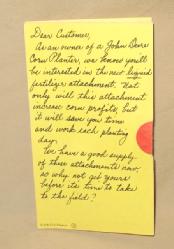 Dear Customer,
As an owner of a John Deere
Corn Planter, we know you'll
be interested in the new liquid
fertilizer attachment. Not
only will this attachment
increase corn profits but
it will save you time
and work each planting
day.
We have a good supply
of these attachments now,
so why not get yours
before its time to take
to the field?